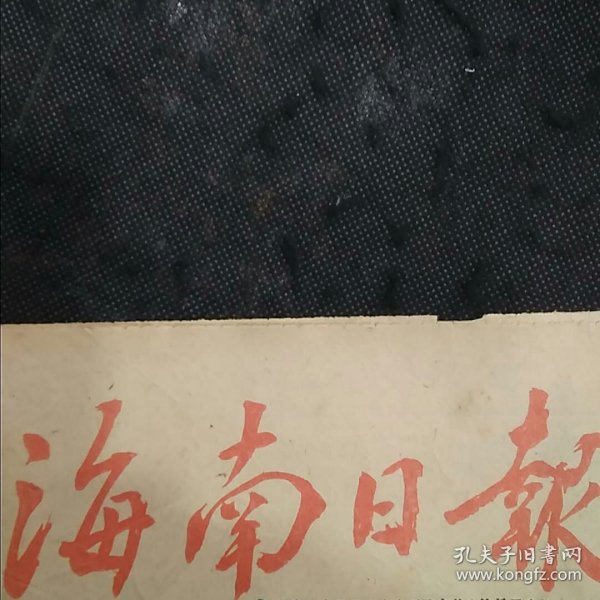 海南日報
孔夫子旧书网
www.kongfz.com